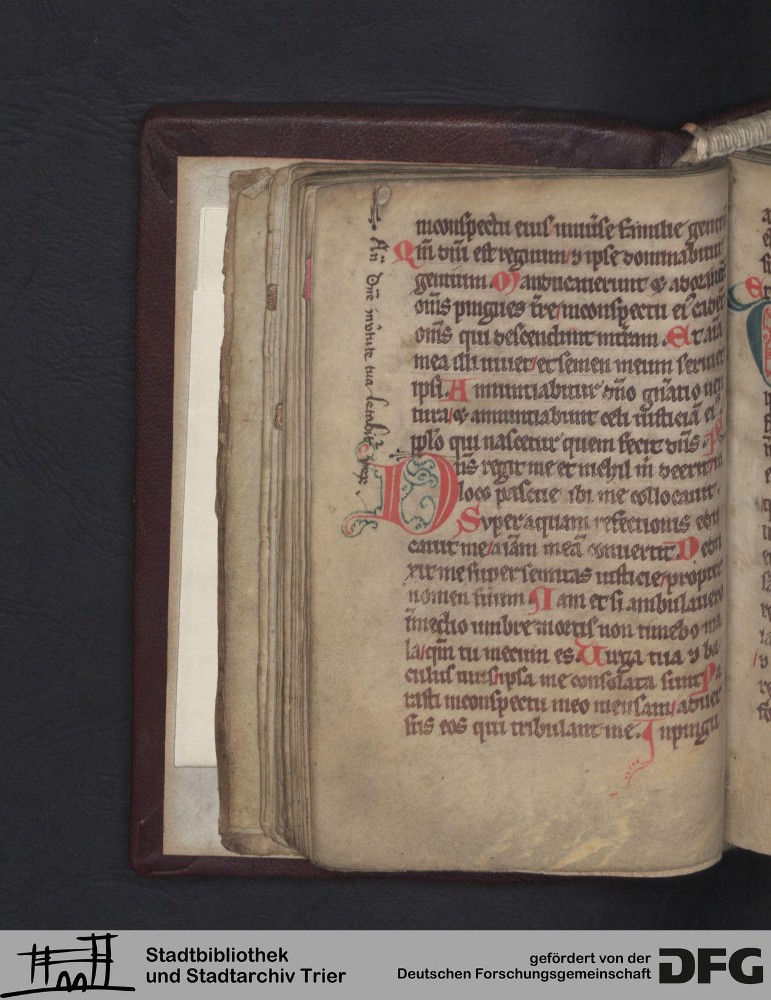 inconspectu eius univ̄se familie gentiū
Qm̄ dm̄ est regnum / ⁊ ipse dominabitur
gentium. Manducaverunt & adoraver̄
om̄s pingues tr̄e / inconspectu ei᷒ cadent
om̄s qui descendunt int̄ram. Et aīa
mea illi vivet / et semen meum serviet
ipsi. Annuntiabitur dn̄o gn̄atio ven
tura / & annuntiabunt celi iusticiā ei᷒
pplo qui nascetur quem fecit dn̄s
Dn̄s regit me et nichil m̄ deerit / in
loco pascue ibi me collocavit.
Super aquam refectionis edu
cavit me / aīam meā convertit. Dedu
xit me super semitas iusticie / propter
nomen suum. Nam et si ambulavero
īmedio umbre mortis non timebo ma
la / qm̄ tu mecum es. Virga tua ⁊ ba
culus tuus / ipsa me consolata sunt. Pa
rasti inconspectu meo mensam / adver
sus eos qui tribulant me. Inpingu
An̄ Dn̄e in v̄tute tua letabit᷑ rex
Stadtbibliothek
und Stadtarchiv Trier
gefördert von der
Deutschen Forschungsgemeinschaft
DFG